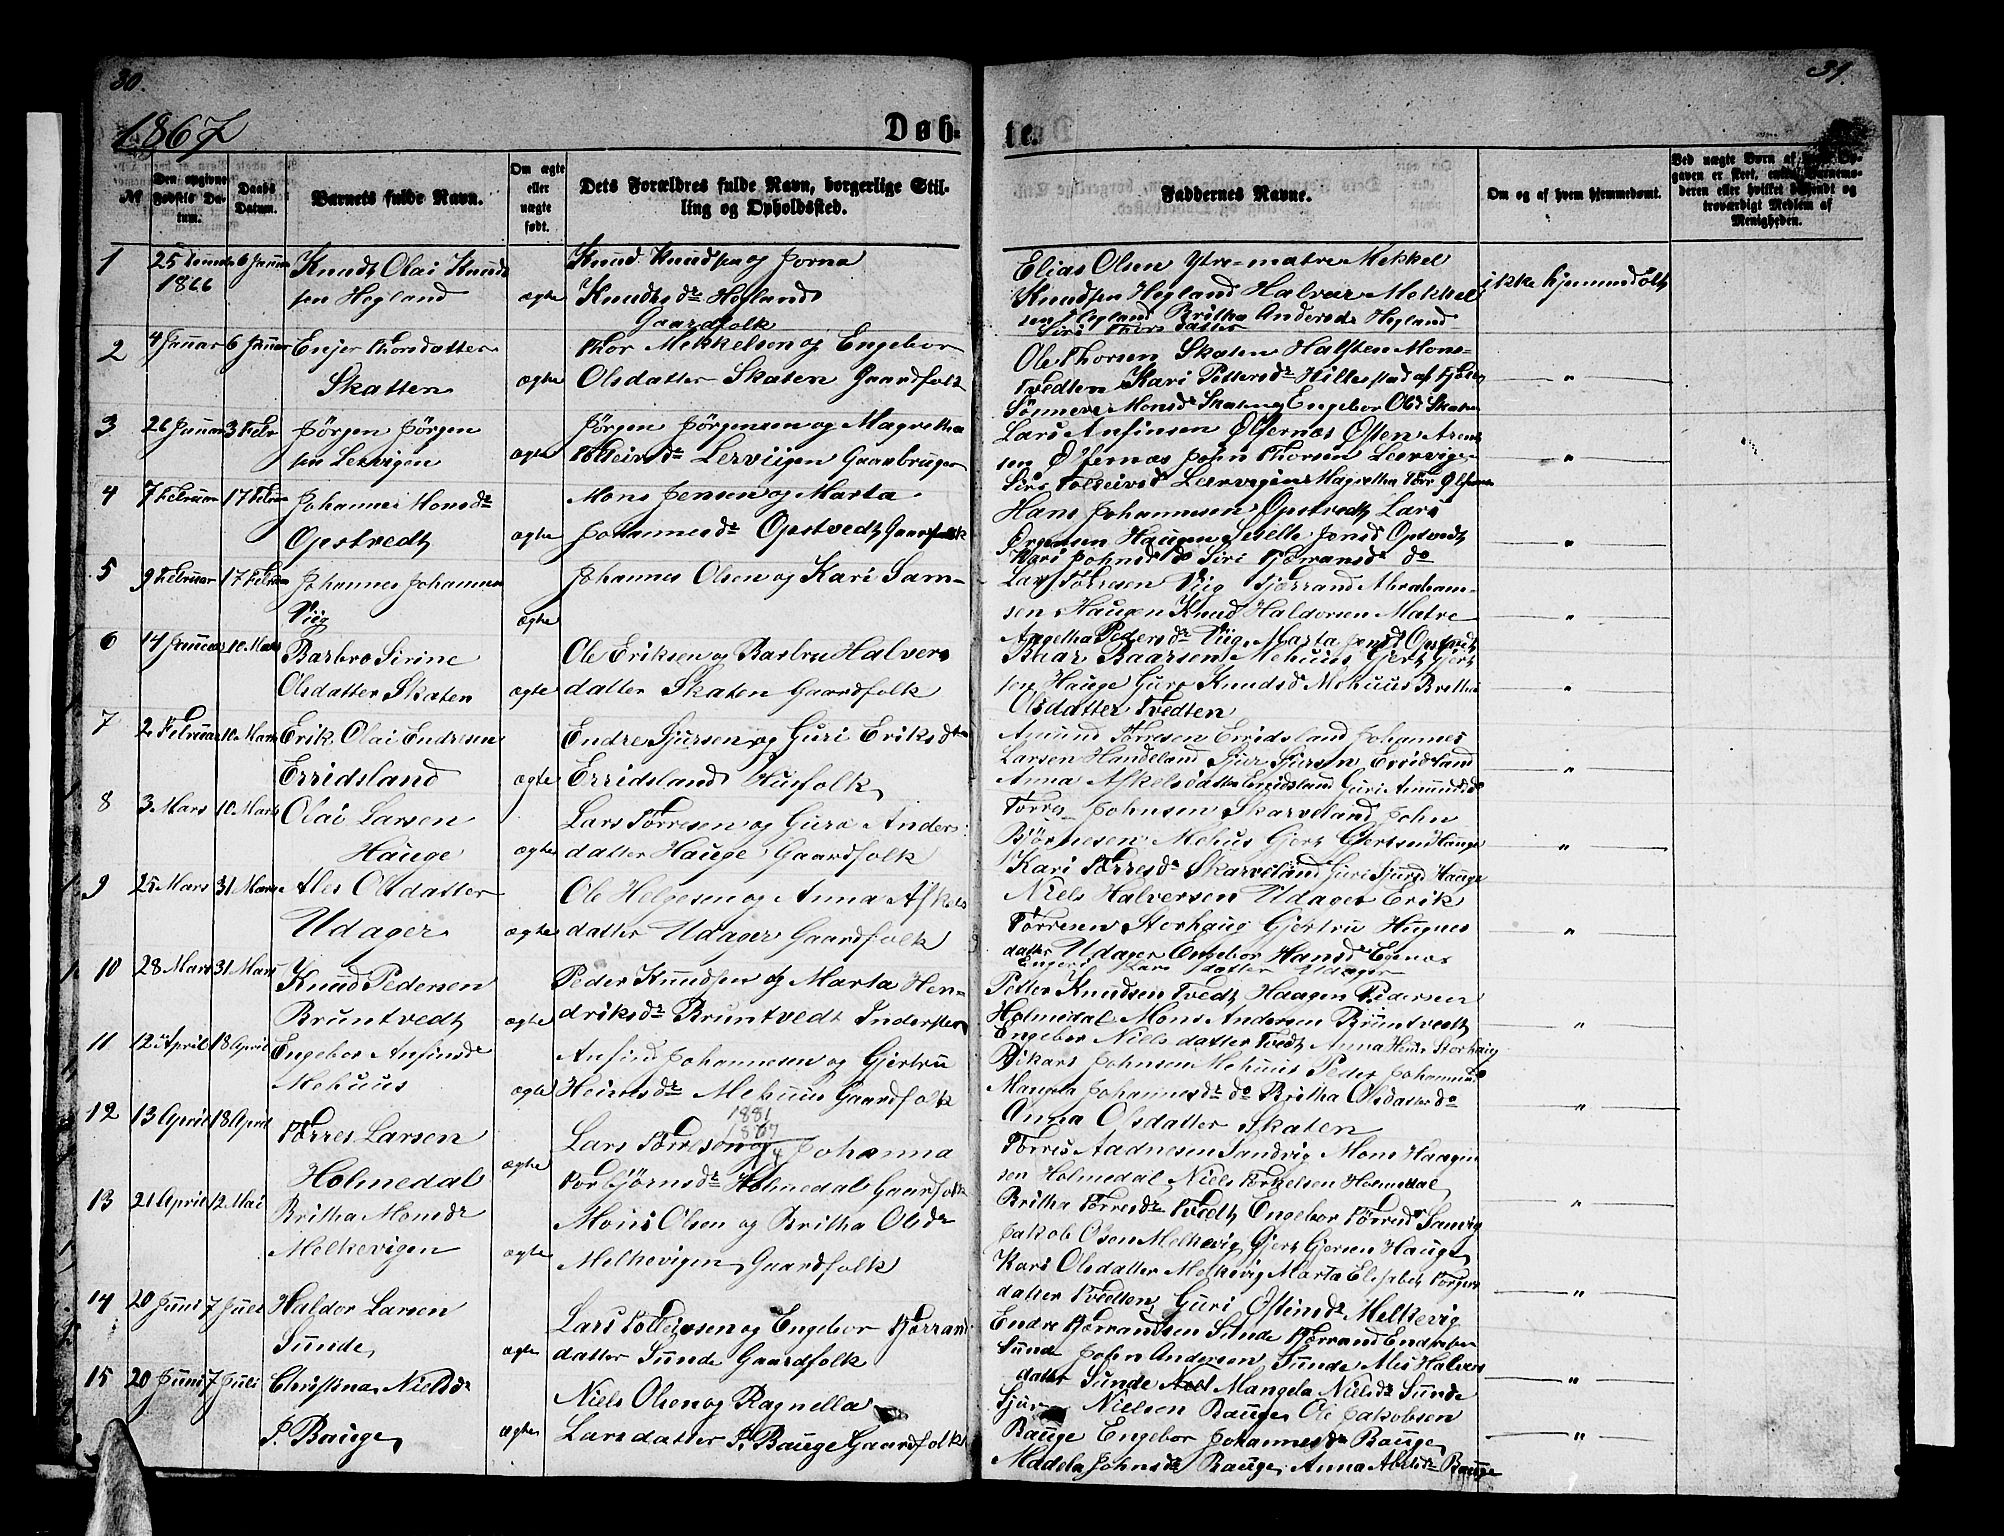 30.
31.
1867
Døb-
te.
№
Den opgivne Fødsels Datum.
Daabs Datum.
Barnets fulde Navn.
Om ægte eller uægte født.
Dets Forældres fulde Navn, borgerlige Stilling og Opholdssted.
Faddernes Navne.
Om og af hvem hjemmedøbt.
Ved uægte Børn af hvem Opgaven er skeet, enten Barnemoderen eller hvilket bekjendt og troværdigt Medlem af Menigheden.
1
25
1866
6 Januar
Knudt Olai Knud
sen Hegland
ægte
Knud Knudsen og Jorna
Knudsdr Hegland
Gaardfolk
Elias Olsen Ytre-matre Mekkel
Knudsen Hegland Halvar Mekkel
sen Hegland Britha Andersdr Hegland
Siri Thors datter
ikke hjemmedøbt
2
4 Januar
6 Januar
Enjer Thorsdatter
Skatten
ægte
Thor Mekkelsen og Engebor
Olsdatter Skaten Gaardfolk
Ole Thorsen Skaten Halsten Mons-
Tvedten Kari Pettersdr Hillestad af Fjære
Monsdr Skaten Engebor Olsd Skaten
— " —
3
26 Januar
3 Febr
Jørgen Jørgen
sen Lervigen
ægte
Jørgen Jørgensen og Magretha
Tolleivsdr Lerviigen Gaarbruger
Lars Anfinsen Ølfernæs Østen Arent
sen Ølfernæs John Thorsen Leervigen
Siri Tolleivsd Leervigen Magretha
— " —
4
7 Februar
17 Februar
Johannes Monsdr
Opstvedt
ægte
Mons Jensen og Marta
Johannesdr Opstvedt Gaardfolk
Hans Johannesen Opstvedt Lars
Ørgensen Haugen Sselle Jonsd Opstvedt
Kari Johnsd do Siri Tjærransdr do
— " —
5
9 Februar
17 Februar
Johannes Johannesen
Viig
ægte
Johannes Olsen og Kari Sam-
Lars Tørresen Viig Tjærrand Abraham-
sen Haugen Knud Haldorsen Matre
Angetha Pedersdr Viig, Marta Jensd Opstvedt
— " —
6
14 Januar
10 Mars
Barbro Sirine
Olsdatter Skaten
ægte
Ole Eriksen og Barbru Halvers
datter Skaten Gaardfolk
Baar Baarsen Mehuus Gjert Gjert
sen Hauge Guro Knudsd Mehuus Britha
Olsdatter Tvedten
— " —
7
2 Februar
10 Mars
Erik Olai Endresen
Erridsland
ægte
Endre Sjursen og Guri Eriksdtr
Erridsland Husfolk
Amund Tørresen Erridsland Johannes
Larsen Handeland Sjur Sjursen Erridsland
Anna Askelsdatter Erridsland Guri Amundsd
— " —
8
3 Mars
10 Mars
Olai Larsen
Hauge
ægte
Lars Tørresen og Guro Anders
datter Hauge Gaardfolk
Torres Johnsen Skarveland John
Bjørnesen Mehus Gjert Gjertsen Hauge
Kari Tørresdr Skarveland Guri Sjursd Hauge
— " —
9
25 Mars
31 Mars
Ales Olsdatter
Udager
ægte
Ole Helgesen og Anna Askels
datter Udager Gaardfolk
Niels Halversen Udager Erik
Tørresen Storhaug Gjertru Hugnes
datter Udager Engebor Hansd Egenæs
Engeri Lars datter Udager
— " —
10
28 Mars
31 Mars
Knud Pedersen
Bruntvedt
ægte
Peder Knudsen og Marta Hen-
driksdr Bruntvedt Indersten
Petter Knudsen Tvedt Haagen Pedersen
Holmedal Mons Andersen Bruntvedt
Engebor Niels datter Tvedt Anna Hendr Storhaug
— " —
11
12 April
18 April
Engebor Anfinsdr
Mehuus
ægte
Anfind Johannesen og Gjertru
Heinesdr Mehuus Gaardfolk
Rikars Johnsen Mehuus Peder Johannes do
Mangela Johannesdr do Britha Olsdatter do
Anna Olsdatter Skaten
— " —
12
13 April
18 April
Tørres Larsen
Holmedal
ægte
1881
1887
Lars Tørresen og Johanna
Torbjørnsdr Holmedal Gaardfolk
Torris Aadnesen Sandvig Mons Haagen
sen Holmedal Niels Torkelsen Holmedal
Britha Tørresdr Tvedt Engebor Tørresdr Sanvig
— " —
13
21 April
12 Mai
Britha Monsdr
Melkevigen
ægte
Mons Olsen og Britha Olsdr
Melkevigen Gaardfolk
Jakob Olsen Melkevig Gjert Gjersen Hauge
Kari Olsdatter Melkevig Marta Elisabet Torgers
datter Tvedten Guri Ostensdr Melkevig
— " —
14
20 Juni
7 Juli
Haldor Larsen
Sunde
ægte
Lars Tolleivsen og Engebor Tjærran
datter Sunde Gaardfolk
Endre Tjærrandsen Sunde Tjærrand Endresen
Sunde John Andersen Sunde Ales Halvers
datter Sunde Mangela Nielsdr Sunde
— " —
15
20 Juni
7 Juli
Christina Nielsdr
I. Bauge
ægte
Niels Olsen og Ragnella
Larsdatter I. Bauge Gaardfolk
Sjur Nielsen Bauge Ole Jakobsen
Bauge Engebor Johannesdr Bauge
Madela Johnsdr Bauge Anna Abelsdr Bauge
— " —